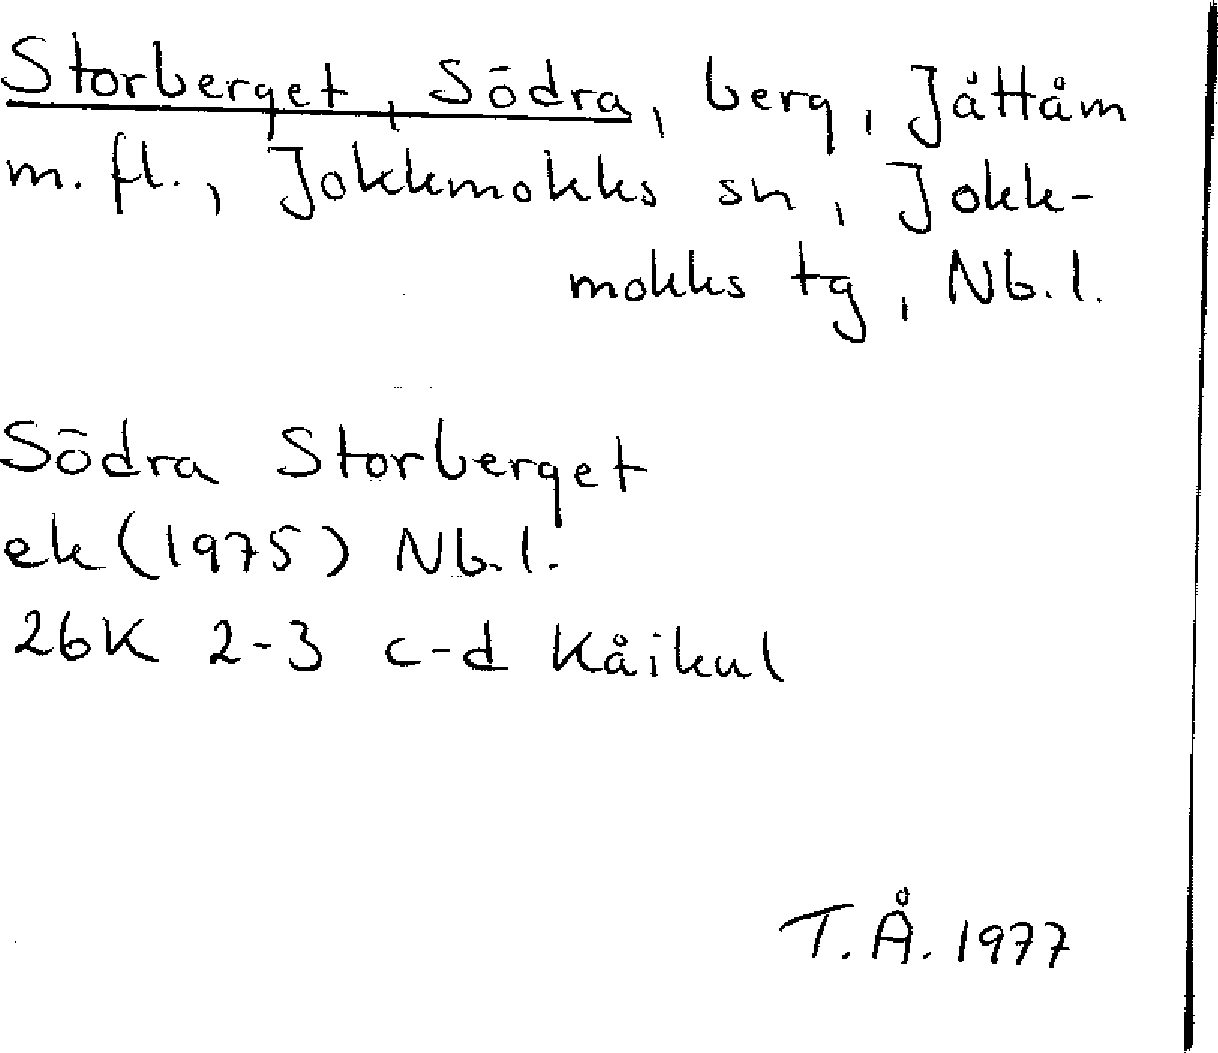 Storberget, Södra, berg, Jåttåm
m. fl., Jokkmokks sn, Jokk-
mokks tg, Nb. l.
Södra Storberget
ek (1975) Nb. l.
26K 2-3 c-d Kåikul
T. Å. 1977